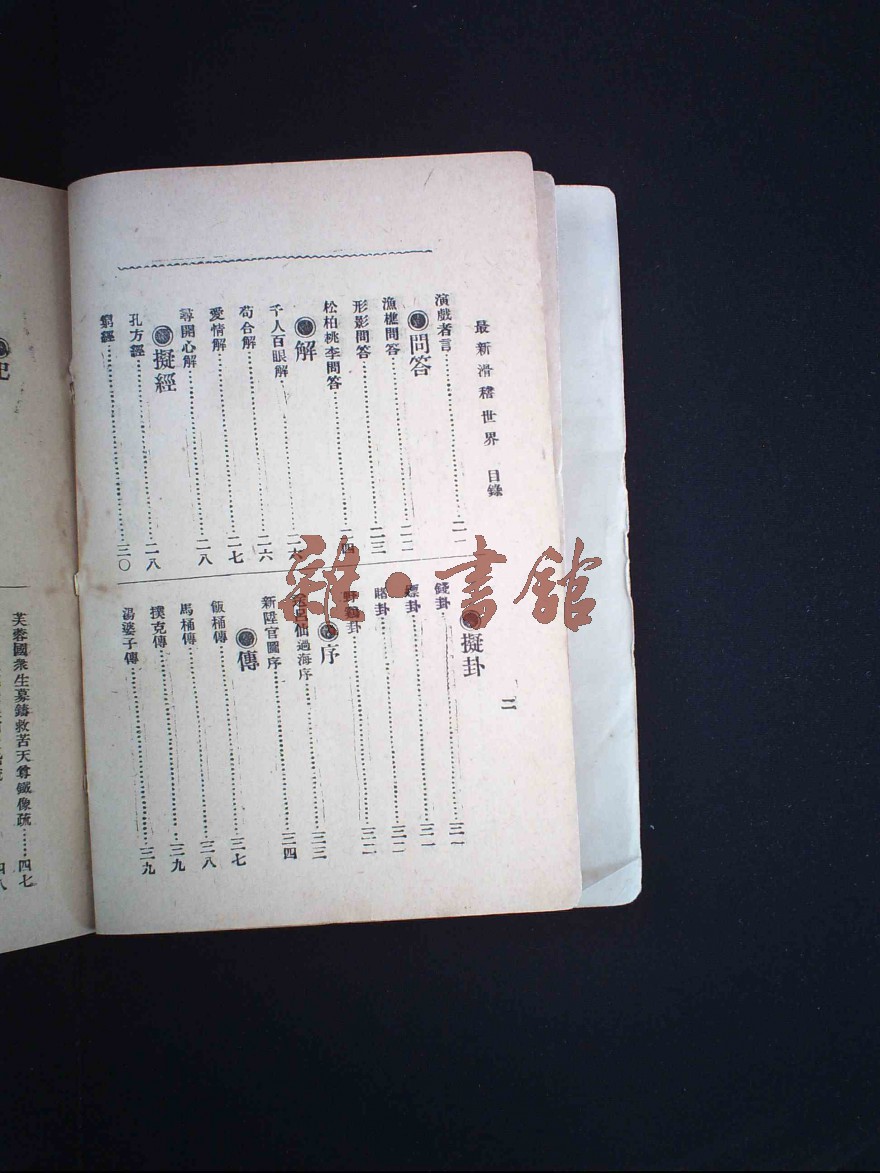 最新滑稽世界 目錄
二
演戲者言……二一
問答
漁樵問答……二二
形影問答……二三
松柏桃李問答……二四
解
千人百眼解……二六
苟合解……二六
愛情解……二七
尋開心解……二八
擬經
孔方經……二八
窮經……三〇
擬卦
錢卦……三一
嫖卦……三一
賭卦……三二
野雞卦……三二
序
呂仙過海序……三三
新陞官圖序……三四
傳
飯桶傳……三七
馬桶傳……三八
撲克傳……三九
湯婆子傳……三九
芙蓉國衆生募鑄救苦天尊鐵像疏……四七
四八
雜·書館